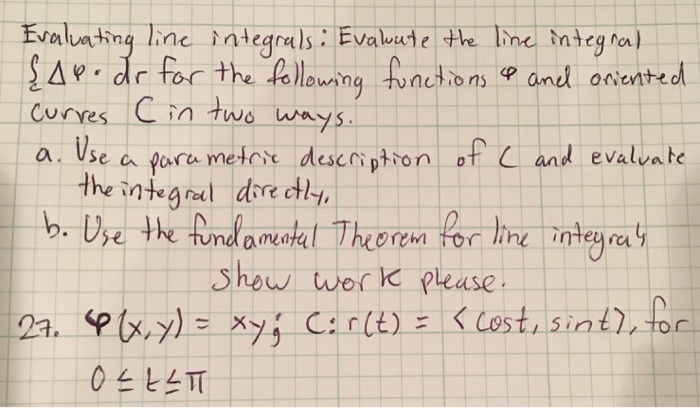 Evaluating line integrals: Evaluate the line integral
∫c Δφ · dr for the following functions φ and oriented
curves C in two ways.
a. Use a parametric description of C and evaluate
the integral directly.
b. Use the fundamental Theorem for line integrals
Show work please.
27. φ(x,y) = xy; C: r(t) = <cost, sint>, for
0 ≤ t ≤ π